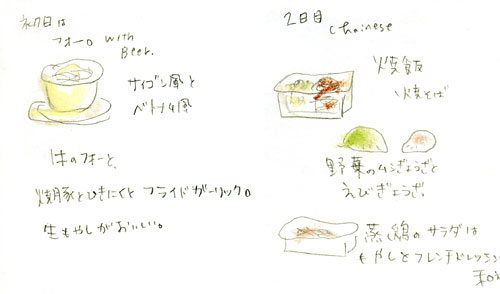 初日は
フォー。with
Beer.
サイゴン風と
ベトナム風
牛のフォーと、
焼豚とひきにくとフライドガーリック。
生もやしがおいしい。
2日目
Chainese
焼飯
焼そば
野菜のムシぎょうざと
えびぎょうざ。
蒸鶏のサラダは
もやしとフレンチドレッシング